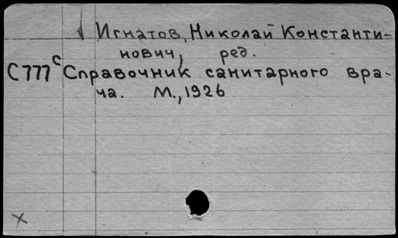 Игнатов, Николай Константи-
нович, ред.
С777с Справочник санитарного вра-
ча. М., 1926
x